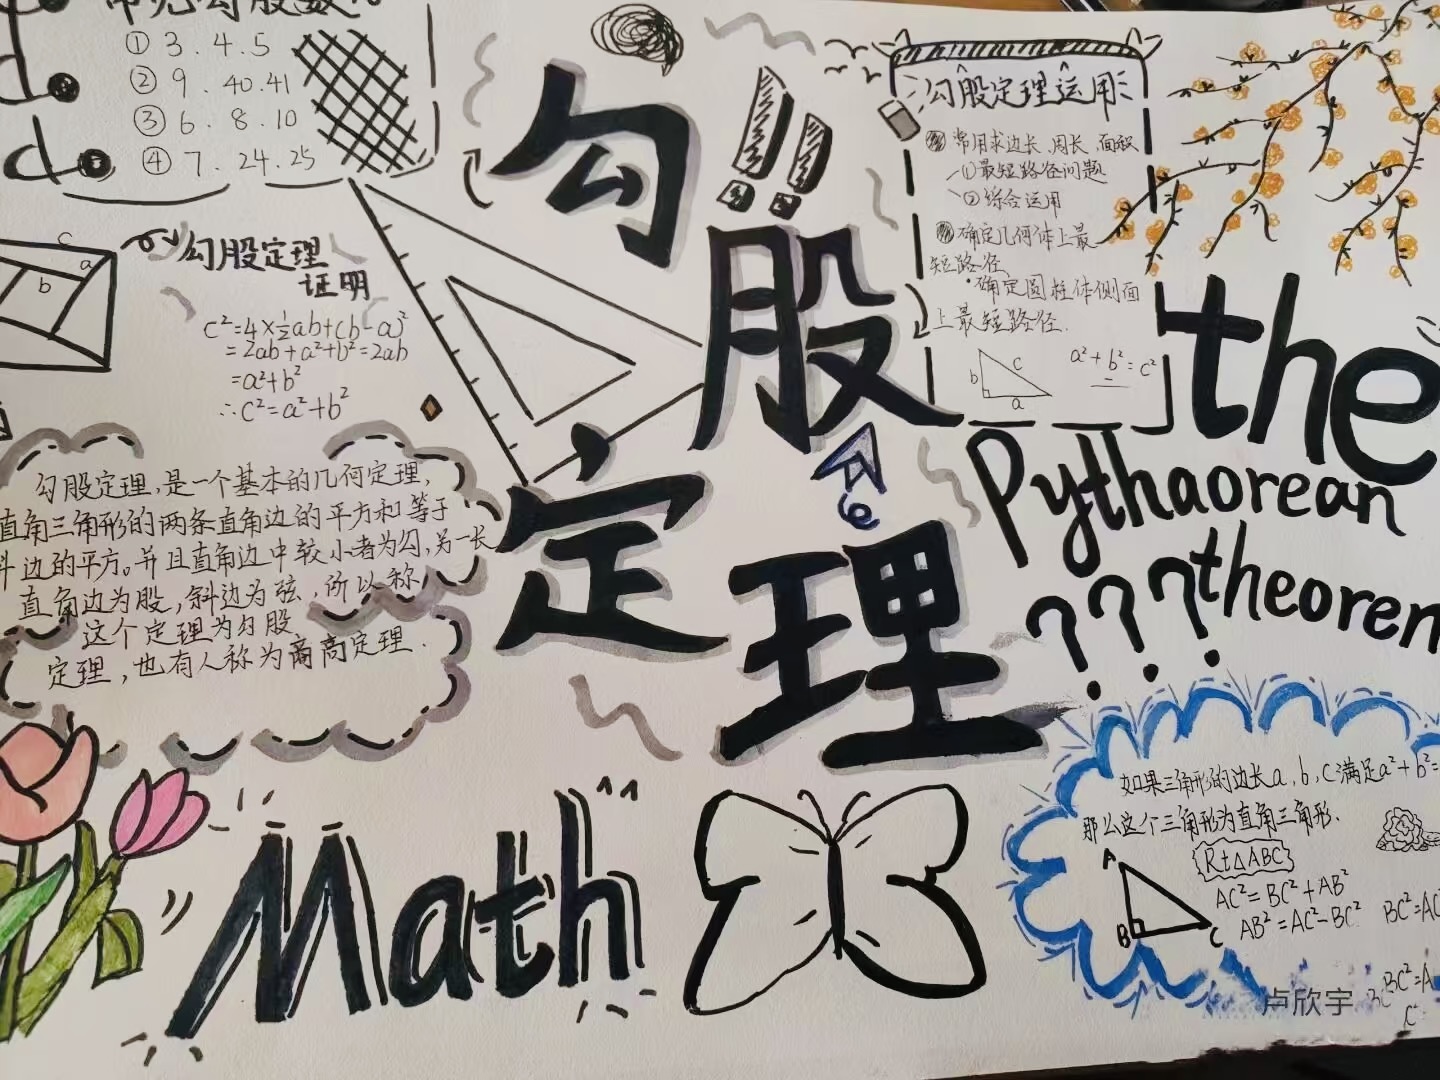 常见勾股数
① 3.4.5
② 9.40.41
③ 6.8.10
④ 7.24.25
c
a
b
勾股定理
证明
c²=4×½ab+(b-a)²
=2ab+a²+b²=2ab
=a²+b²
∴c²=a²+b²
勾股定理,是一个基本的几何定理,
直角三角形的两条直角边的平方和等于
斜边的平方。并且直角边中较小者为勾,另一长
直角边为股,斜边为弦,所以称
这个定理为勾股
定理,也有人称为商高定理.
勾
股
定
理
!!
勾股定理运用
常用求边长、周长、面积
①最短路径问题
②综合运用
确定几何体上最
短路径
·确定圆柱体侧面
上最短路径.
b
c
a
a²+b²=c²
the
Pythaorean
theorem
???
Math
如果三角形的边长a,b,c满足a²+b²=
那么这个三角形为直角三角形.
Rt△ABC
A
B
C
AC²=BC²+AB²
AB²=AC²-BC²
BC²=AC
BC²=A
卢欣宇